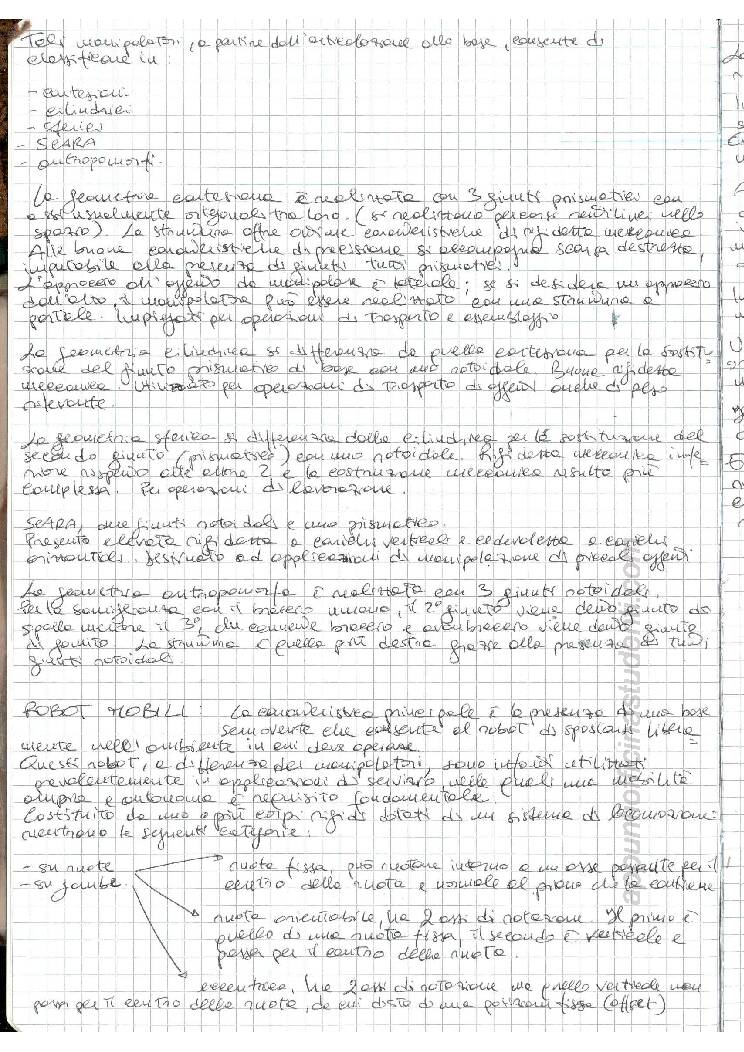 Tali manipolatori, a partire dall'articolazione alla base, consente di
classificare in :
- cartesiani.
- cilindrici
- sferici
- SCARA
- antropomorfi.
La geometria cartesiana è realizzata con 3 giunti prismatici con
assi usualmente ortogonali tra loro. (si realizzano percorsi rettilinei nello
spazio). La struttura offre ottime caratteristiche di rigidezza meccanica
Alle buone caratteristiche di precisione si accompagna scarsa destrezza,
imputabile alla presenza di giunti tutti prismatici.
L'approccio all'oggetto da manipolare è laterale; se si desidera un approccio
dall'alto, il manipolatore può essere realizzato con una struttura a
portale. Impiegati per operazioni di trasporto e assemblaggio
La geometria cilindrica si differenzia da quella cartesiana per la sostitu-
zione del giunto prismatico di base con uno rotoidale. Buona rigidezza
meccanica utilizzato per operazioni di trasporto di oggetti anche di peso
rilevante.
La geometria sferica si differenzia dalla cilindrica per la sostituzione del
secondo giunto (prismatico) con uno rotoidale. Rigidezza meccanica infe-
riore rispetto alle altre 2 e la costruzione meccanica risulta più
complessa. Per operazioni di lavorazione.
SCARA, due giunti rotoidali e uno prismatico.
Presenta elevata rigidezza a carichi verticali e cedevolezza a carichi
orizzontali. Destinato ad applicazioni di manipolazione di piccoli oggetti
La geometria antropomorfa è realizzata con 3 giunti rotoidali.
Per la somiglianza con il braccio umano, il 2° giunto viene detto giunto di
spalla mentre il 3°, che connette braccio e avambraccio viene detto giunto
di gomito. La struttura è quella più destra grazie alla presenza di tutti
giunti rotoidali.
ROBOT MOBILI : La caratteristica principale è la presenza di una base
semovente che consenta al robot di spostarsi libera
mente nell'ambiente in cui deve operare.
Questi robot, a differenza dei manipolatori, sono infatti utilizzati
prevalentemente in applicazioni di servizio, nelle quali una mobilità
ampia e autonoma è requisito fondamentale.
Costituito da uno o più corpi rigidi dotati di un sistema di locomozione:
rientrano le seguenti categorie :
- su ruote
- su gambe.
ruota fissa, può ruotare intorno a un asse passante per il
centro della ruota e normale al piano che la contiene
ruota orientabile, ha 2 assi di rotazione. Il primo è
quello di una ruota fissa, il secondo è verticale e
passa per il centro della ruota.
eccentrica, ha 2 assi di rotazione ma quello verticale non
passa per il centro della ruota, da cui dista di una posizione fissa (offset)
appuntiunicinastudenti.com